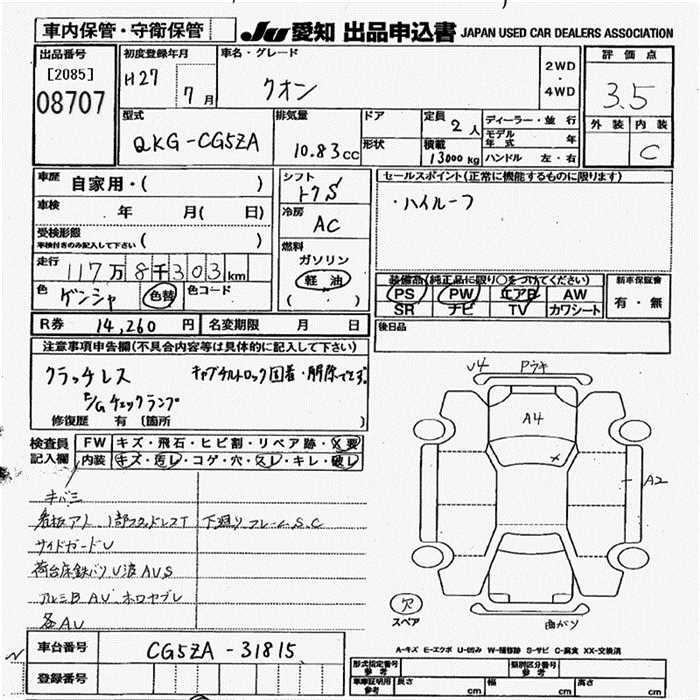 車内保管・守衛保管
JU 愛知 出品申込書 JAPAN USED CAR DEALERS ASSOCIATION
出品番号 [2085] 08707
初度登録年月 H27 7月
車名・グレード クオン
2WD・4WD
評価点 3.5
型式 QKG-CG5ZA
排気量 10.83cc
ドア
形状
定員 2人
積載 13000kg
ディーラー・並行
モデル年式 年
ハンドル 左・右
外装 内装 C
車歴 自家用・( )
車検 年 月( 日)
受検形態 車検付きのみ記入して下さい ( )
走行 117万8千303km
色 ゲンシャ 色替 色コード
シフト トクS
冷房 AC
燃料 ガソリン 軽油 ( ・ )
セールスポイント(正常に機能するものに限ります)
・ハイルーフ
装備品(純正品に限り○をつけてください)
PS PW エアB AW
SR ナビ TV カワシート
新車保証書 有・無
R券 14,260円 名変期限 月 日
後日品
注意事項申告欄(不具合内容等は具体的に記入して下さい)
クラッチレス キャブチルトロック固着・解除できず
E/Gチェックランプ
修復歴 有 〔箇所 〕
検査員記入欄
FW キズ・飛石・ヒビ割・リペア跡・X要
内装 キズ・汚レ・コゲ・穴・スレ・キレ・破レ
キバミ
看板アト 1部フタドレスT 下廻リフレームS.C
サイドガードU
荷台床鉄バリU波AUS
アルミB AU
各AU
U4
A4
A2
曲がり
穴 スペア
車台番号 CG5ZA-31815
登録番号
A-キズ E-エクボ U-凹み W-補修跡 S-サビ C-腐食 XX-交換済
型式指定番号 参考
類別区分番号 参考
車庫証明用 参考 長さ cm 幅 cm 高さ cm